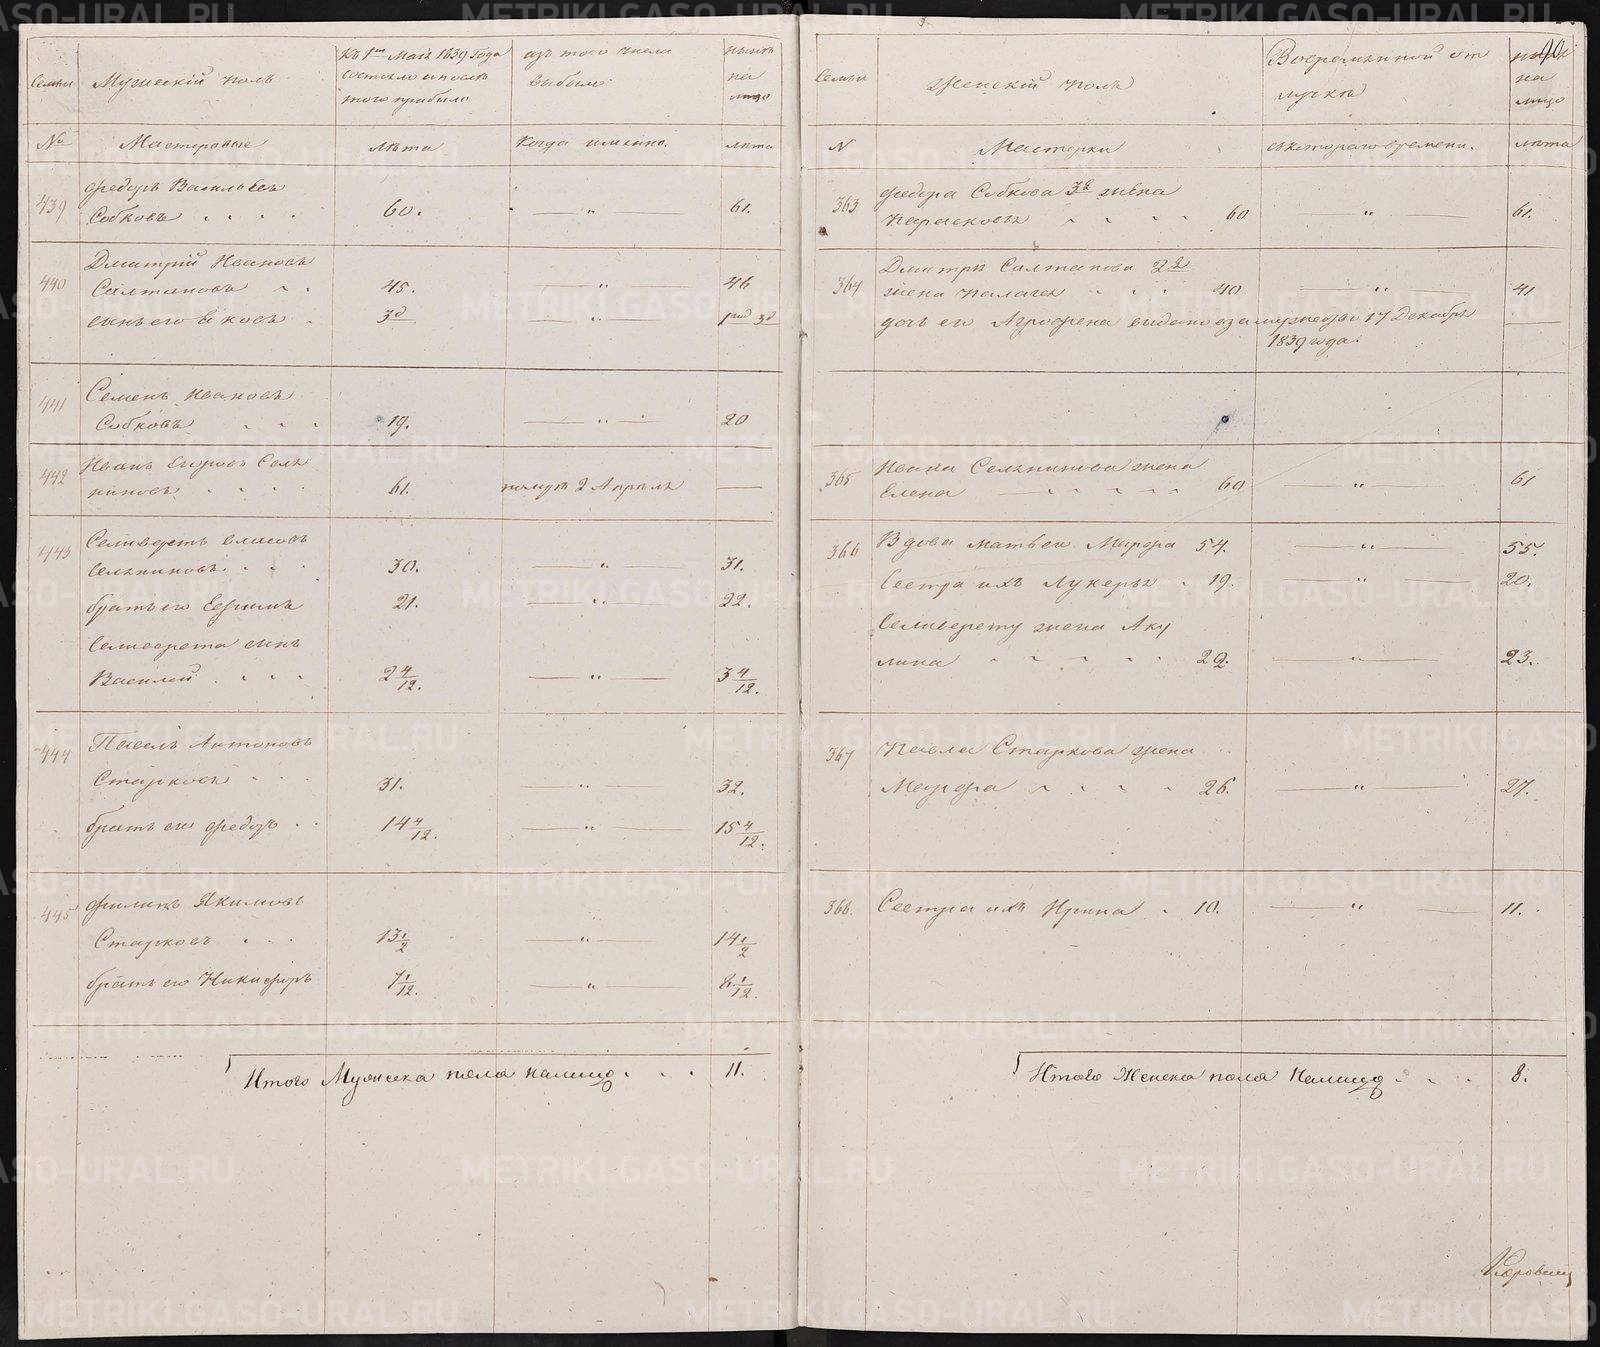 Семьи
Мужескій полъ
Къ 1му Маія 1839 Года
состояло и после
того прибыло
изъ того числа
выбыло
ныне
на
лицо
№
Мастеровые
лѣта
Когда имянно.
лѣта
439
Федоръ Васильевъ
Собковъ
60.
"
61.
440
Дмитрій Ивановъ
Салтановъ
45.
"
46
сынъ его Яковъ
3д
"
1год 3д
441
Семенъ Ивановъ
Собковъ
19.
"
20
442
Иванъ Егоровъ Сель
никовъ
61.
померъ 2 Апреля
443
Селиверстъ
Сельниковъ
30.
"
31.
братъ его Ефимъ
21.
"
22.
Селиверста сынъ
Василей
2 4/12.
"
3 4/12.
444
Павелъ Антоновъ
Старковъ
31.
"
32.
братъ его Федоръ
14 4/12.
"
15 4/12.
445
Филипъ Якимовъ
Старковъ
13 1/2
"
14 1/2
братъ его Никифоръ
7 1/12.
"
8 1/12.
Итого Мужеска пола налицо
11.
90
Семьи
Женскій полъ
Вовременной от
лучке
на
лицо
N
Мастерки
скотораго времени.
лета
363
Федора Собкова 3я жена
Парасковья
60
"
61.
364
Дмитрія Салтанова 2я
жена Палагея
40
"
41
дочь ея Агрофена выдана в замужество 17 Декабря
1839 года.
365
Ивана Сельникова жена
Елена
60
"
61
366
Вдова Матвея Марфа 54.
"
55.
Сестра ихъ Лукерья 19.
"
20.
Селиверсту жена Аку
лина
22.
"
23.
367
Павла Старкова жена
Марфа
26.
"
27.
368.
Сестра ихъ Ирина 10.
"
11.
Итого Женска пола Налицо
8.
METRIKI.GASO-URAL.RU